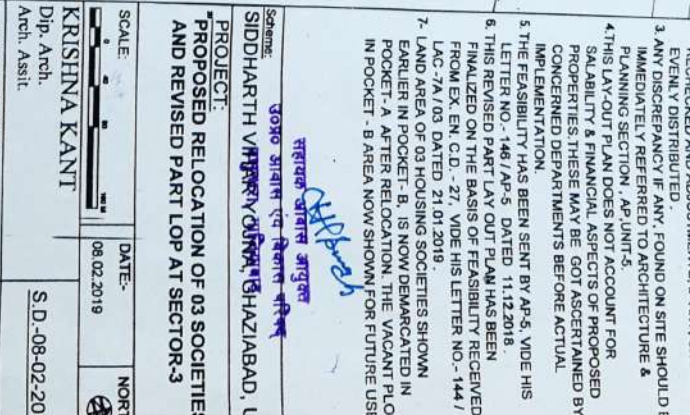 EVENLY DISTRIBUTED.
3. ANY DISCREPANCY IF ANY, FOUND ON SITE SHOULD
IMMEDIATELY REFERRED TO ARCHITECTURE &
PLANNING SECTION, AP,UNIT-5.
4.THIS LAY-OUT PLAN DOES NOT ACCOUNT FOR
SALABILITY & FINANCIAL ASPECTS OF PROPOSED
PROPERTIES.THESE MAY BE GOT ASCERTAINED BY
CONCERNED DEPARTMENTS BEFORE ACTUAL
IMPLEMENTATION.
5. THE FEASIBILITY HAS BEEN SENT BY AP-5, VIDE HIS
LETTER NO.- 146 / AP-5 DATED 11.12.2018.
6. THIS REVISED PART LAY OUT PLAN HAS BEEN
FINALIZED ON THE BASIS OF FEASIBILITY RECEIVED
FROM EX. EN. C.D. - 27, VIDE HIS LETTER NO.- 144 /
LAC -7A / 03 DATED 21.01.2019.
7- LAND AREA OF 03 HOUSING SOCIETIES SHOWN
EARLIER IN POCKET- B, IS NOW DEMARCATED IN
POCKET- A AFTER RELOCATION. THE VACANT PLO
IN POCKET - B AREA NOW SHOWN FOR FUTURE USE
सहायक आवास आयुक्त
उ०प्र० आवास एवं विकास परिषद
Scheme:
SIDDHARTH VIHAR YOJNA, GHAZIABAD, U
PROJECT:
"PROPOSED RELOCATION OF 03 SOCIETIES
AND REVISED PART LOP AT SECTOR-3
SCALE:
DATE:-
08.02.2019
NORT
KRISHNA KANT
Dip. Arch.
Arch. Assit.
S.D.-08-02-20